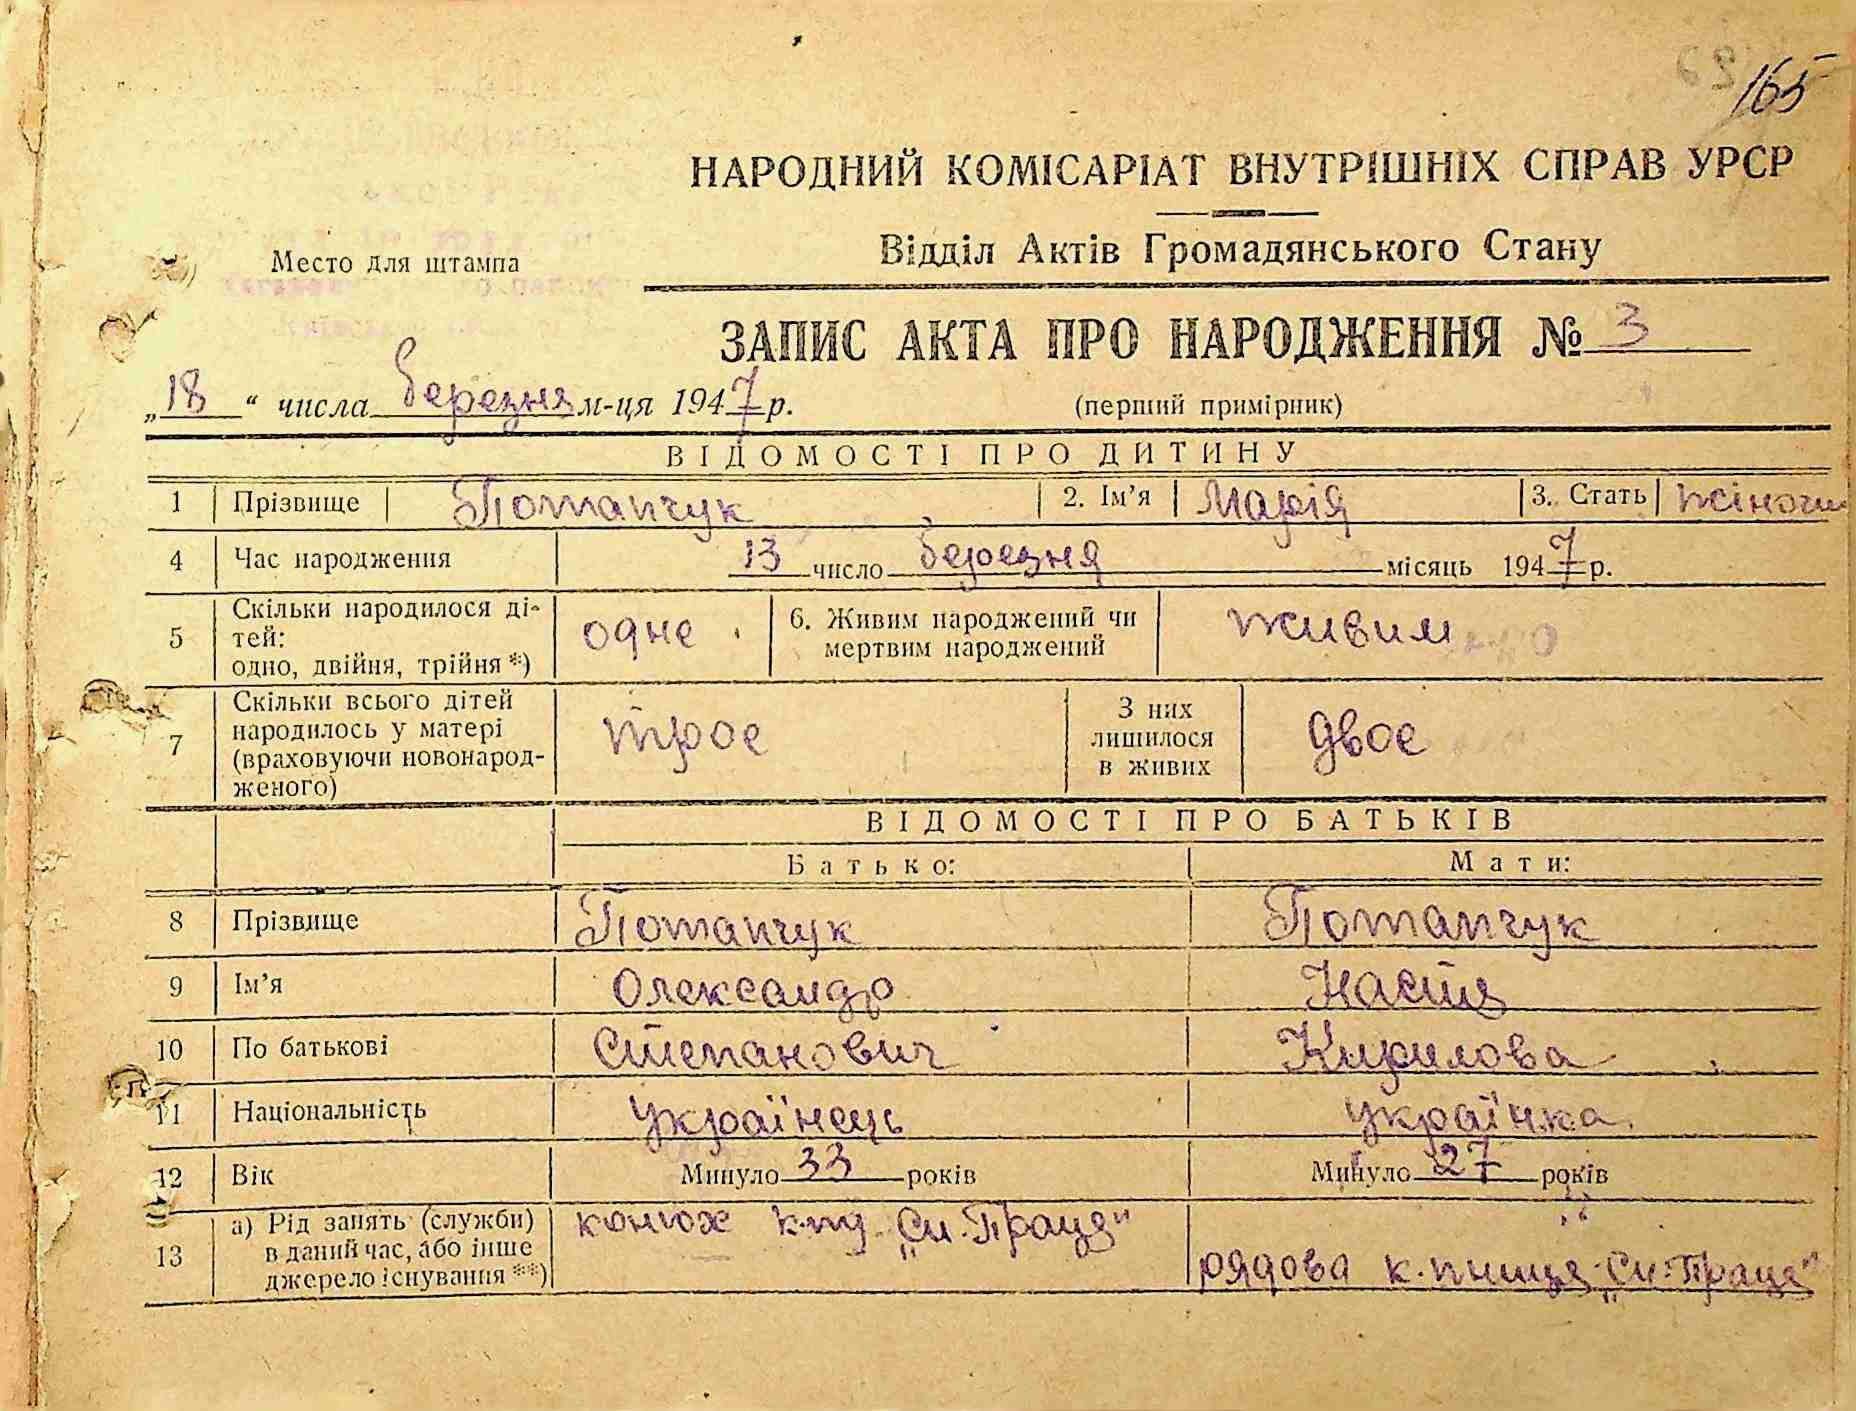 165
НАРОДНИЙ КОМІСАРІАТ ВНУТРІШНІХ СПРАВ УРСР
Відділ Актів Громадянського Стану
Место для штампа
ЗАПИС АКТА ПРО НАРОДЖЕННЯ № 3
„18“ числа березня м-ця 1947 р.
(перший примірник)
ВІДОМОСТІ ПРО ДИТИНУ
1 Прізвище Потапчук 2. Ім’я Марія 3. Стать
4 Час народження 13 число березня місяць 1947 р.
5 Скільки народилося ді-
тей:
одно, двійня, трійня *)
одне
6. Живим народжений чи
мертвим народжений
живим
7 Скільки всього дітей
народилось у матері
(враховуючи новонарод-
женого)
троє
З них
лишилося
в живих
двоє
ВІДОМОСТІ ПРО БАТЬКІВ
Батько: Мати:
8 Прізвище Потапчук Потапчук
9 Ім’я Олександр Настя
10 По батькові Степанович Кирилова
11 Національність українець українка
12 Вік Минуло 33 років Минуло 27 років
13 а) Рід занять (служби)
в даний час, або інше
джерело існування **)
конюх к-пу „Сп. Праця“
рядова к-пниця „Сп. Праця“